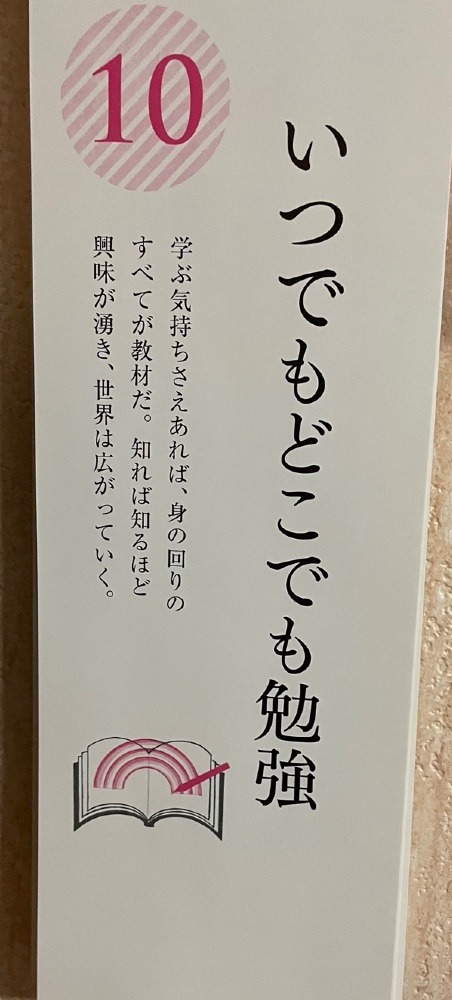 10
いつでもどこでも勉強
学ぶ気持ちさえあれば、身の回りの
すべてが教材だ。知れば知るほど
興味が湧き、世界は広がっていく。